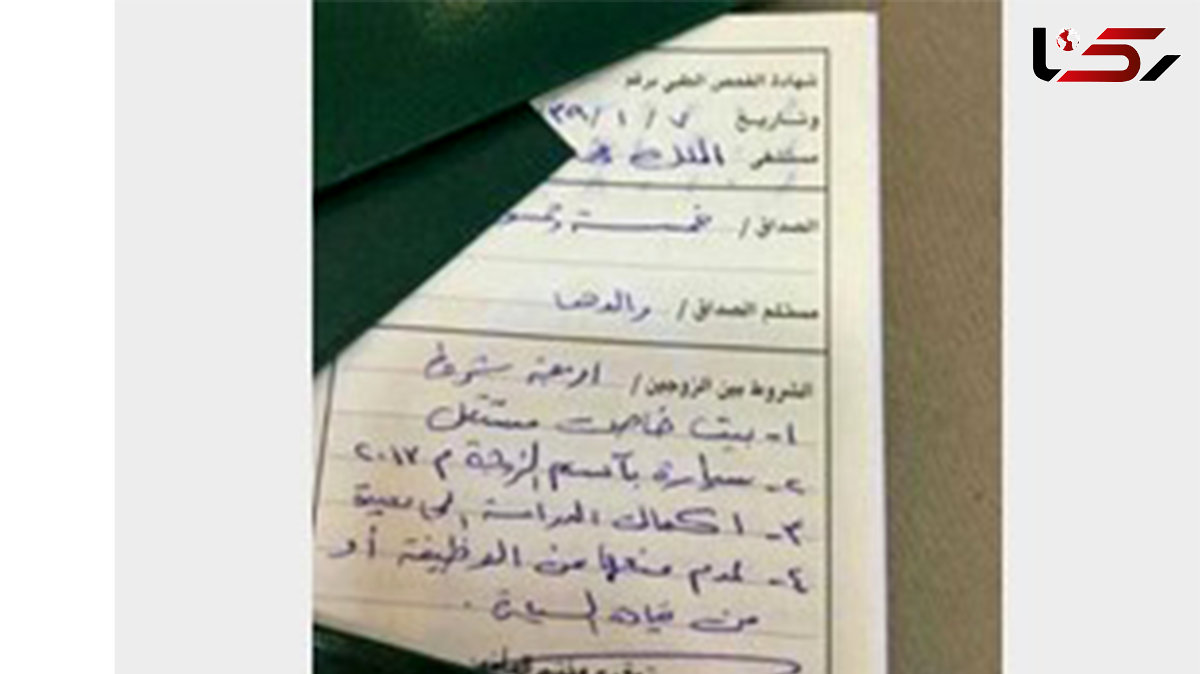 رکنا
شهادة الفحص الطبي برقم
وتاريخ ٧ / ١ /
مستشفى الملك
الصداق / خمسة
مستلم الصداق / والدها
الشروط بين الزوجين / اربعة شروط
١- بيت خاص مستقل
٢- سيارة بآسم الزوجة م ٢٠١٧
٣- اكمال الدراسة الجامعية
٤- عدم منعها من الوظيفة أو
من قيادة السيارة .